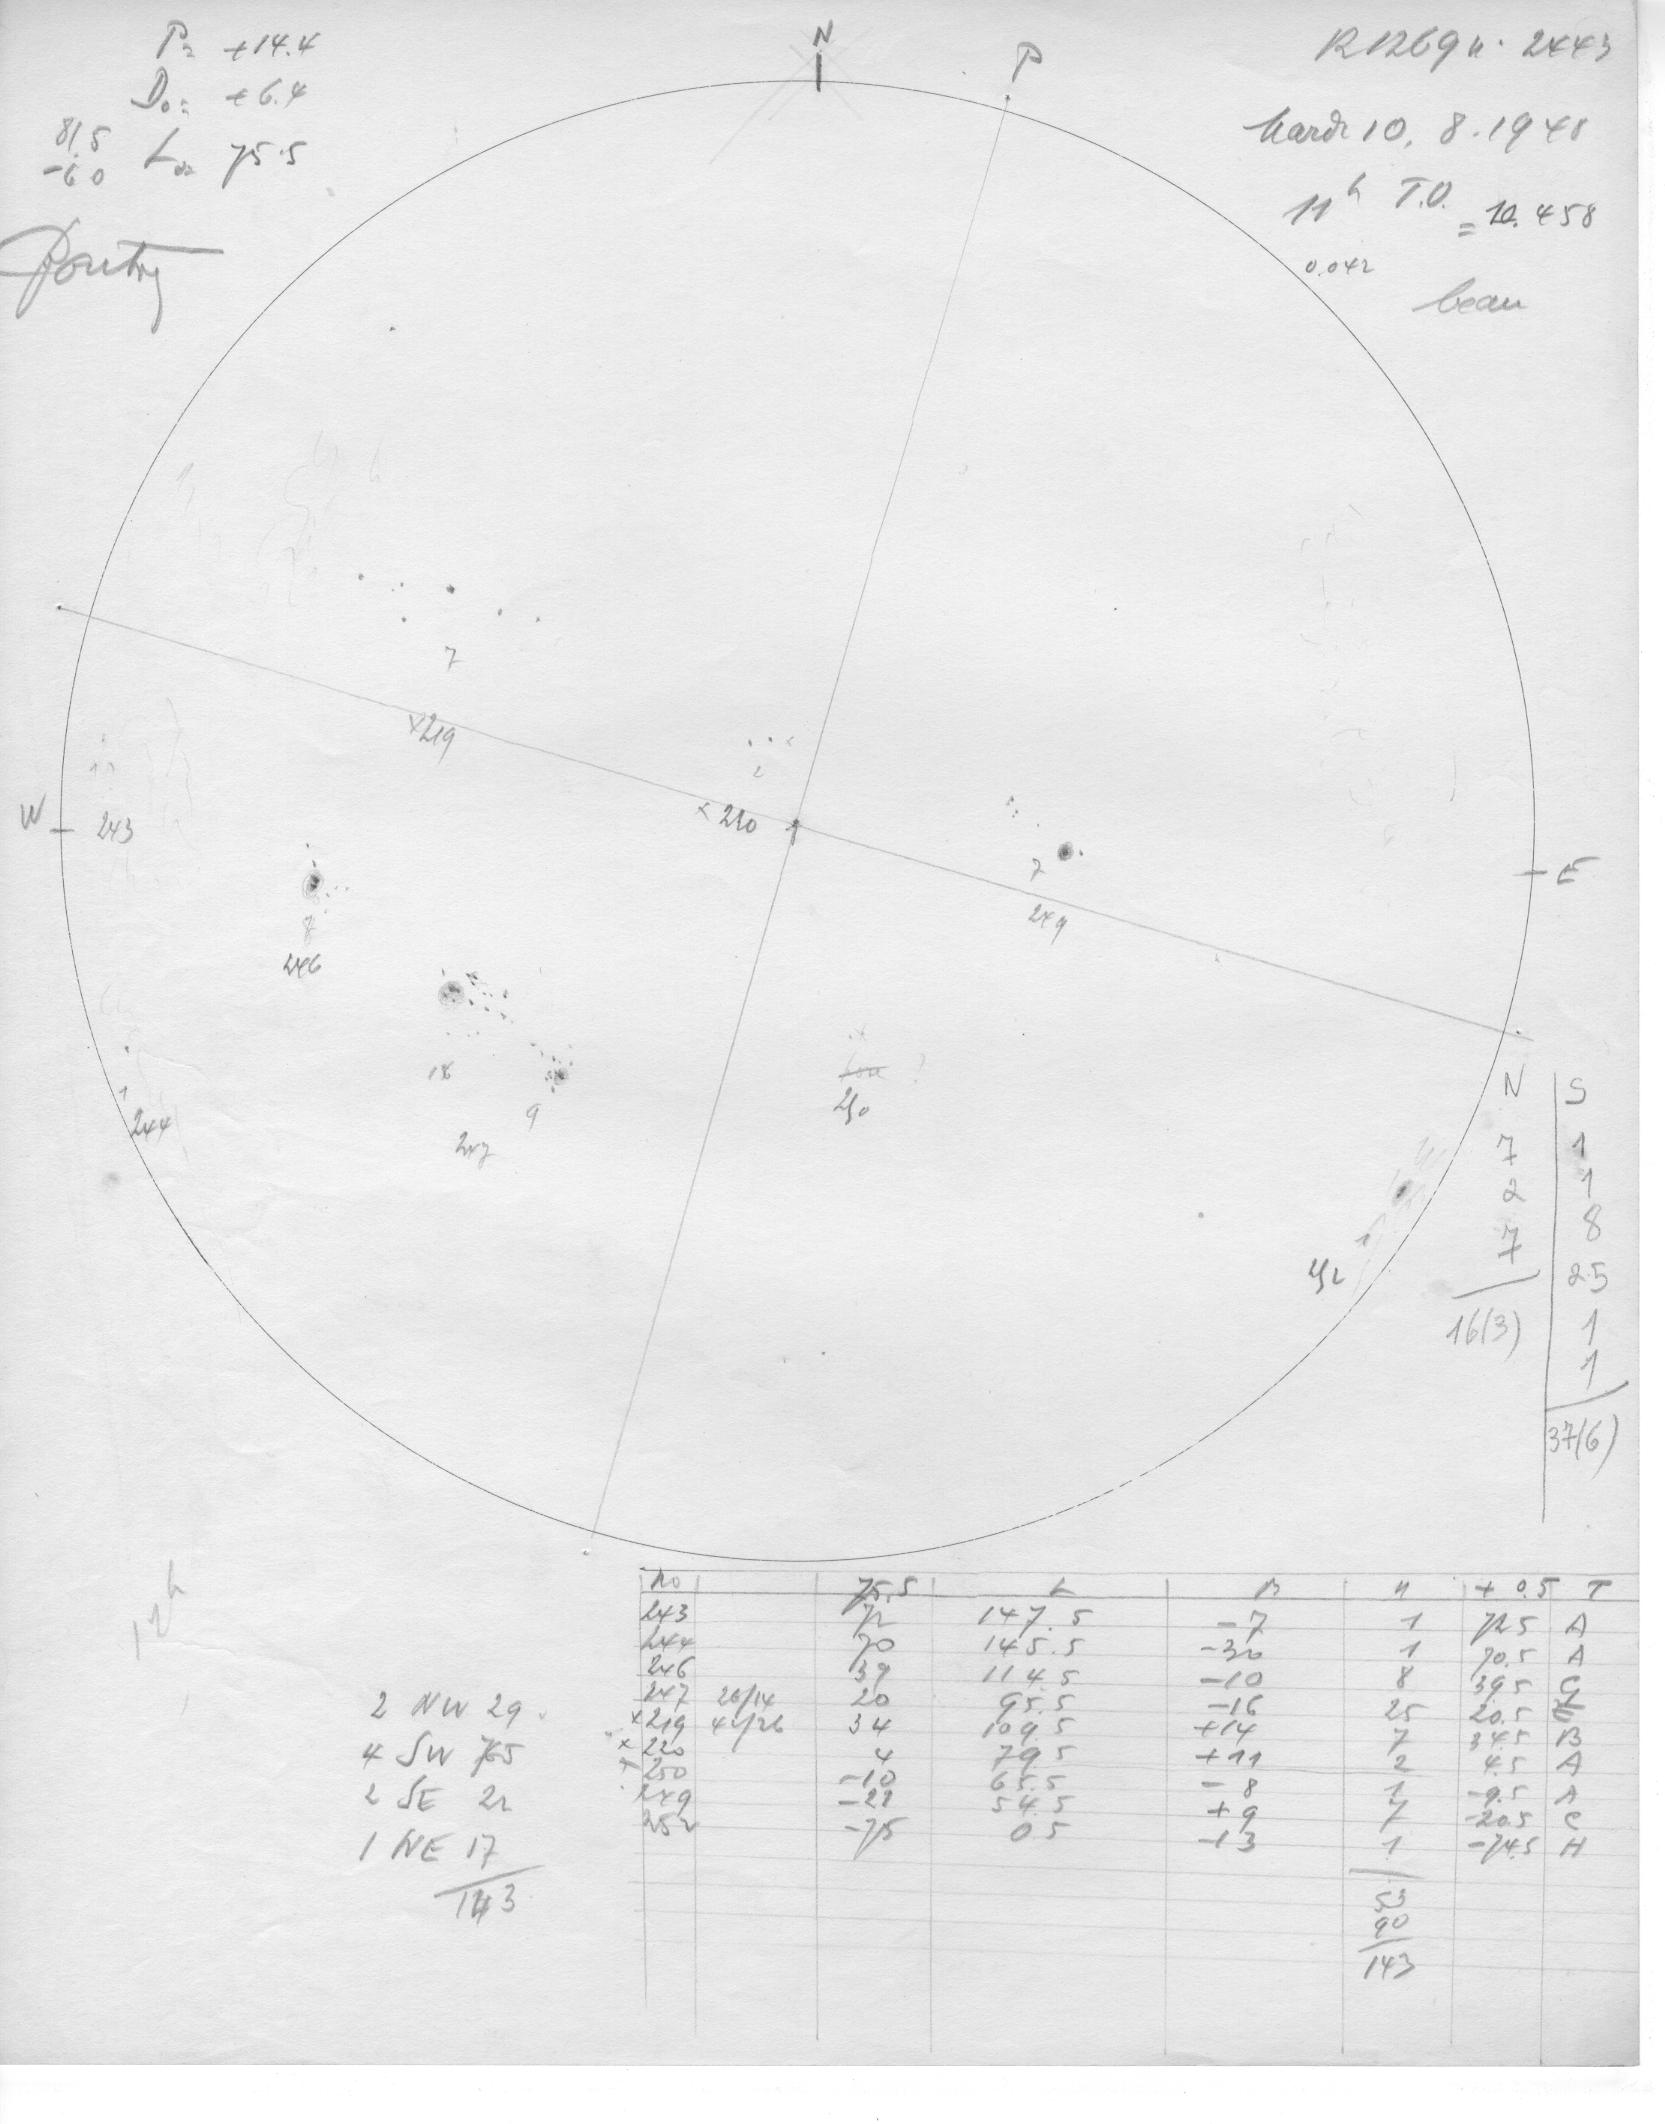 P= +14.4
D₀= +6.4
81.5
-60 L₀= 75.5
N
P
R 126 9 n. 2443
Mardi 10. 8. 1948
11h T.U. = 10.458
0.042
beau
7
x219
W
243
x 220
E
7
249
8
246
18
9
247
250
?
1
244
1
252
N S
7 1
2 1
7 8
25
16(3) 1
1
37(6)
12h
No 75.5 L B n +0.5 T
243 72 147.5 -7 1 72.5 A
244 70 145.5 -30 1 70.5 A
246 39 114.5 -10 8 39.5 C
247 26/14 20 95.5 -16 25 20.5 E
x219 42/26 34 109.5 +14 7 34.5 B
x220 4 79.5 +11 2 4.5 A
250 -10 65.5 -8 1 -9.5 A
249 -21 54.5 +9 7 -20.5 C
252 -75 0.5 -13 1 -74.5 H
53
90
143
2 NW 29
4 SW 75
2 SE 22
1 NE 17
143